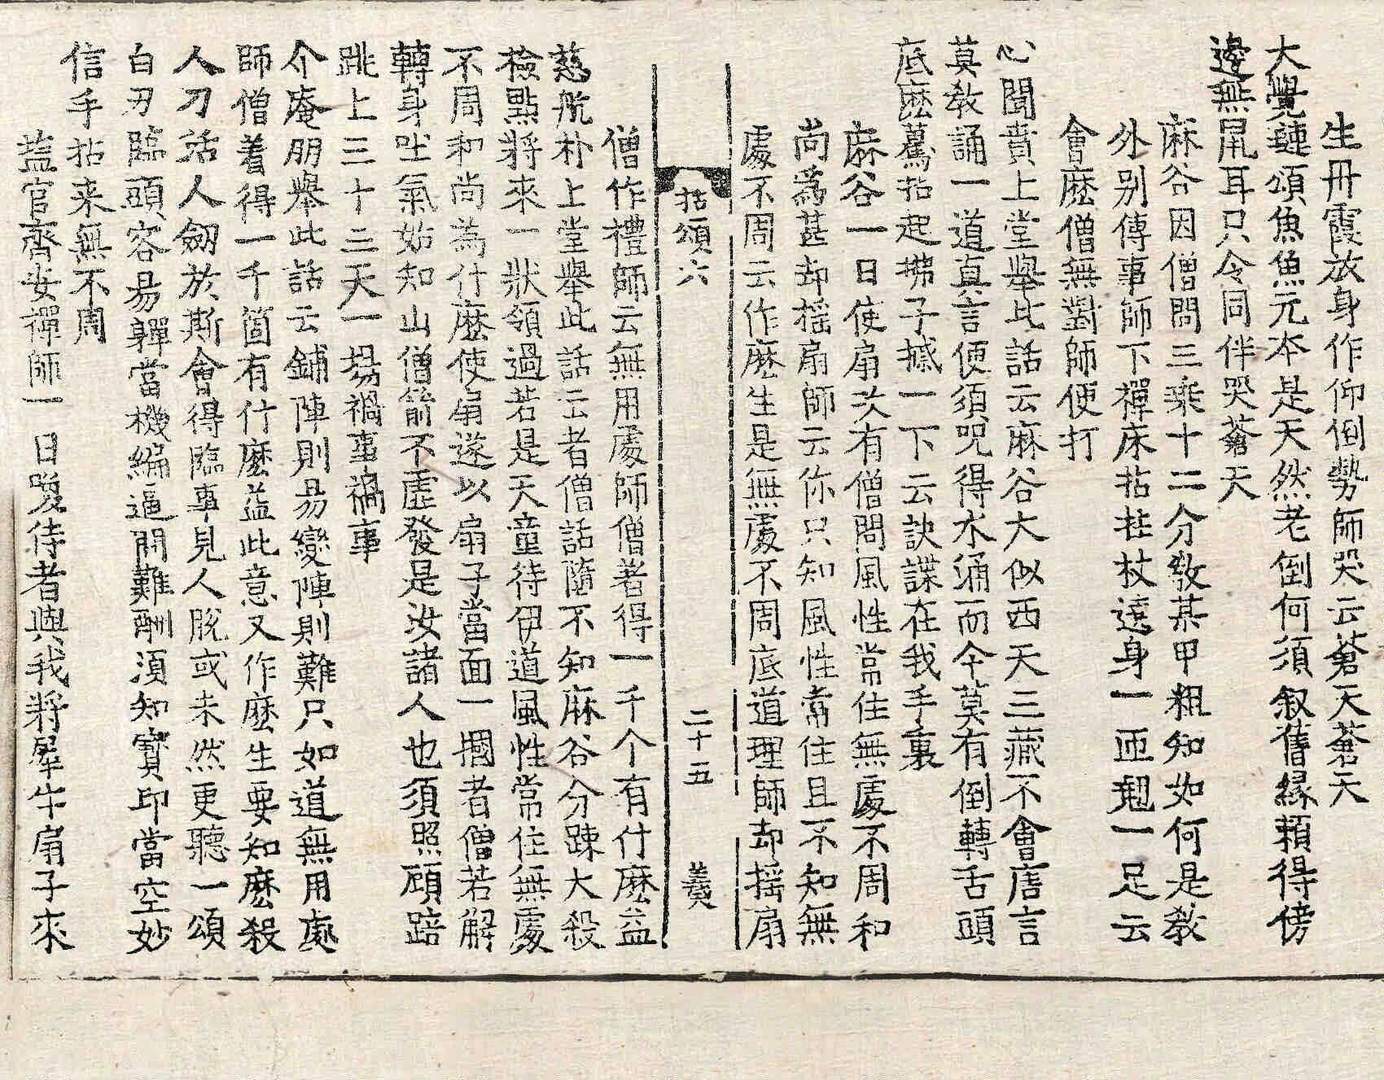 生丹霞放身作仰倒勢師哭云蒼天蒼天
大覺璉頌魚魚元本是天然老倒何須叙舊緣賴得傍
邊無𣆶耳只令同伴哭蒼天
麻谷因僧問三乘十二分敎某甲粗知如何是敎
外别傳事師下禪床拈拄杖遶身一匝翹一足云
會麽僧無對師便打
心聞賁上堂舉此話云麻谷大似西天三藏不會唐言
莫敎誦一道真言便須呪得水涌而今莫有倒轉舌頭
底麽驀拈起拂子撼一下云訣諜在我手裏
麻谷一日使扇次有僧問風性常住無處不周和
尚爲甚却揺扇師云你只知風性常住且不知無
處不周云作麽生是無處不周底道理師却揺扇
拈頌六
二十五
羲
僧作禮師云無用處師僧著得一千个有什麽益
慈航朴上堂舉此話云者僧話隨不知麻谷分踈大殺
檢點將來一狀領過若是天童待伊道風性常住無處
不周和尚為什麽使扇遂以扇子當面一摑者僧若解
轉身吐氣始知山僧箭不虛發是汝諸人也須照顧踣
跳上三十三天一塲禍事禍事
介庵朋舉此話云鋪陣則易變陣則難只如道無用處
師僧着得一千箇有什麽益此意又作麽生要知麽殺
人刀活人劒於斯會得臨事見人脫或未然更聽一頌
白刃臨頭容易嚲當機編逼問難酬須知寶印當空妙
信手拈来無不周
盐官齊安禪師一日喚侍者與我將犀牛扇子來